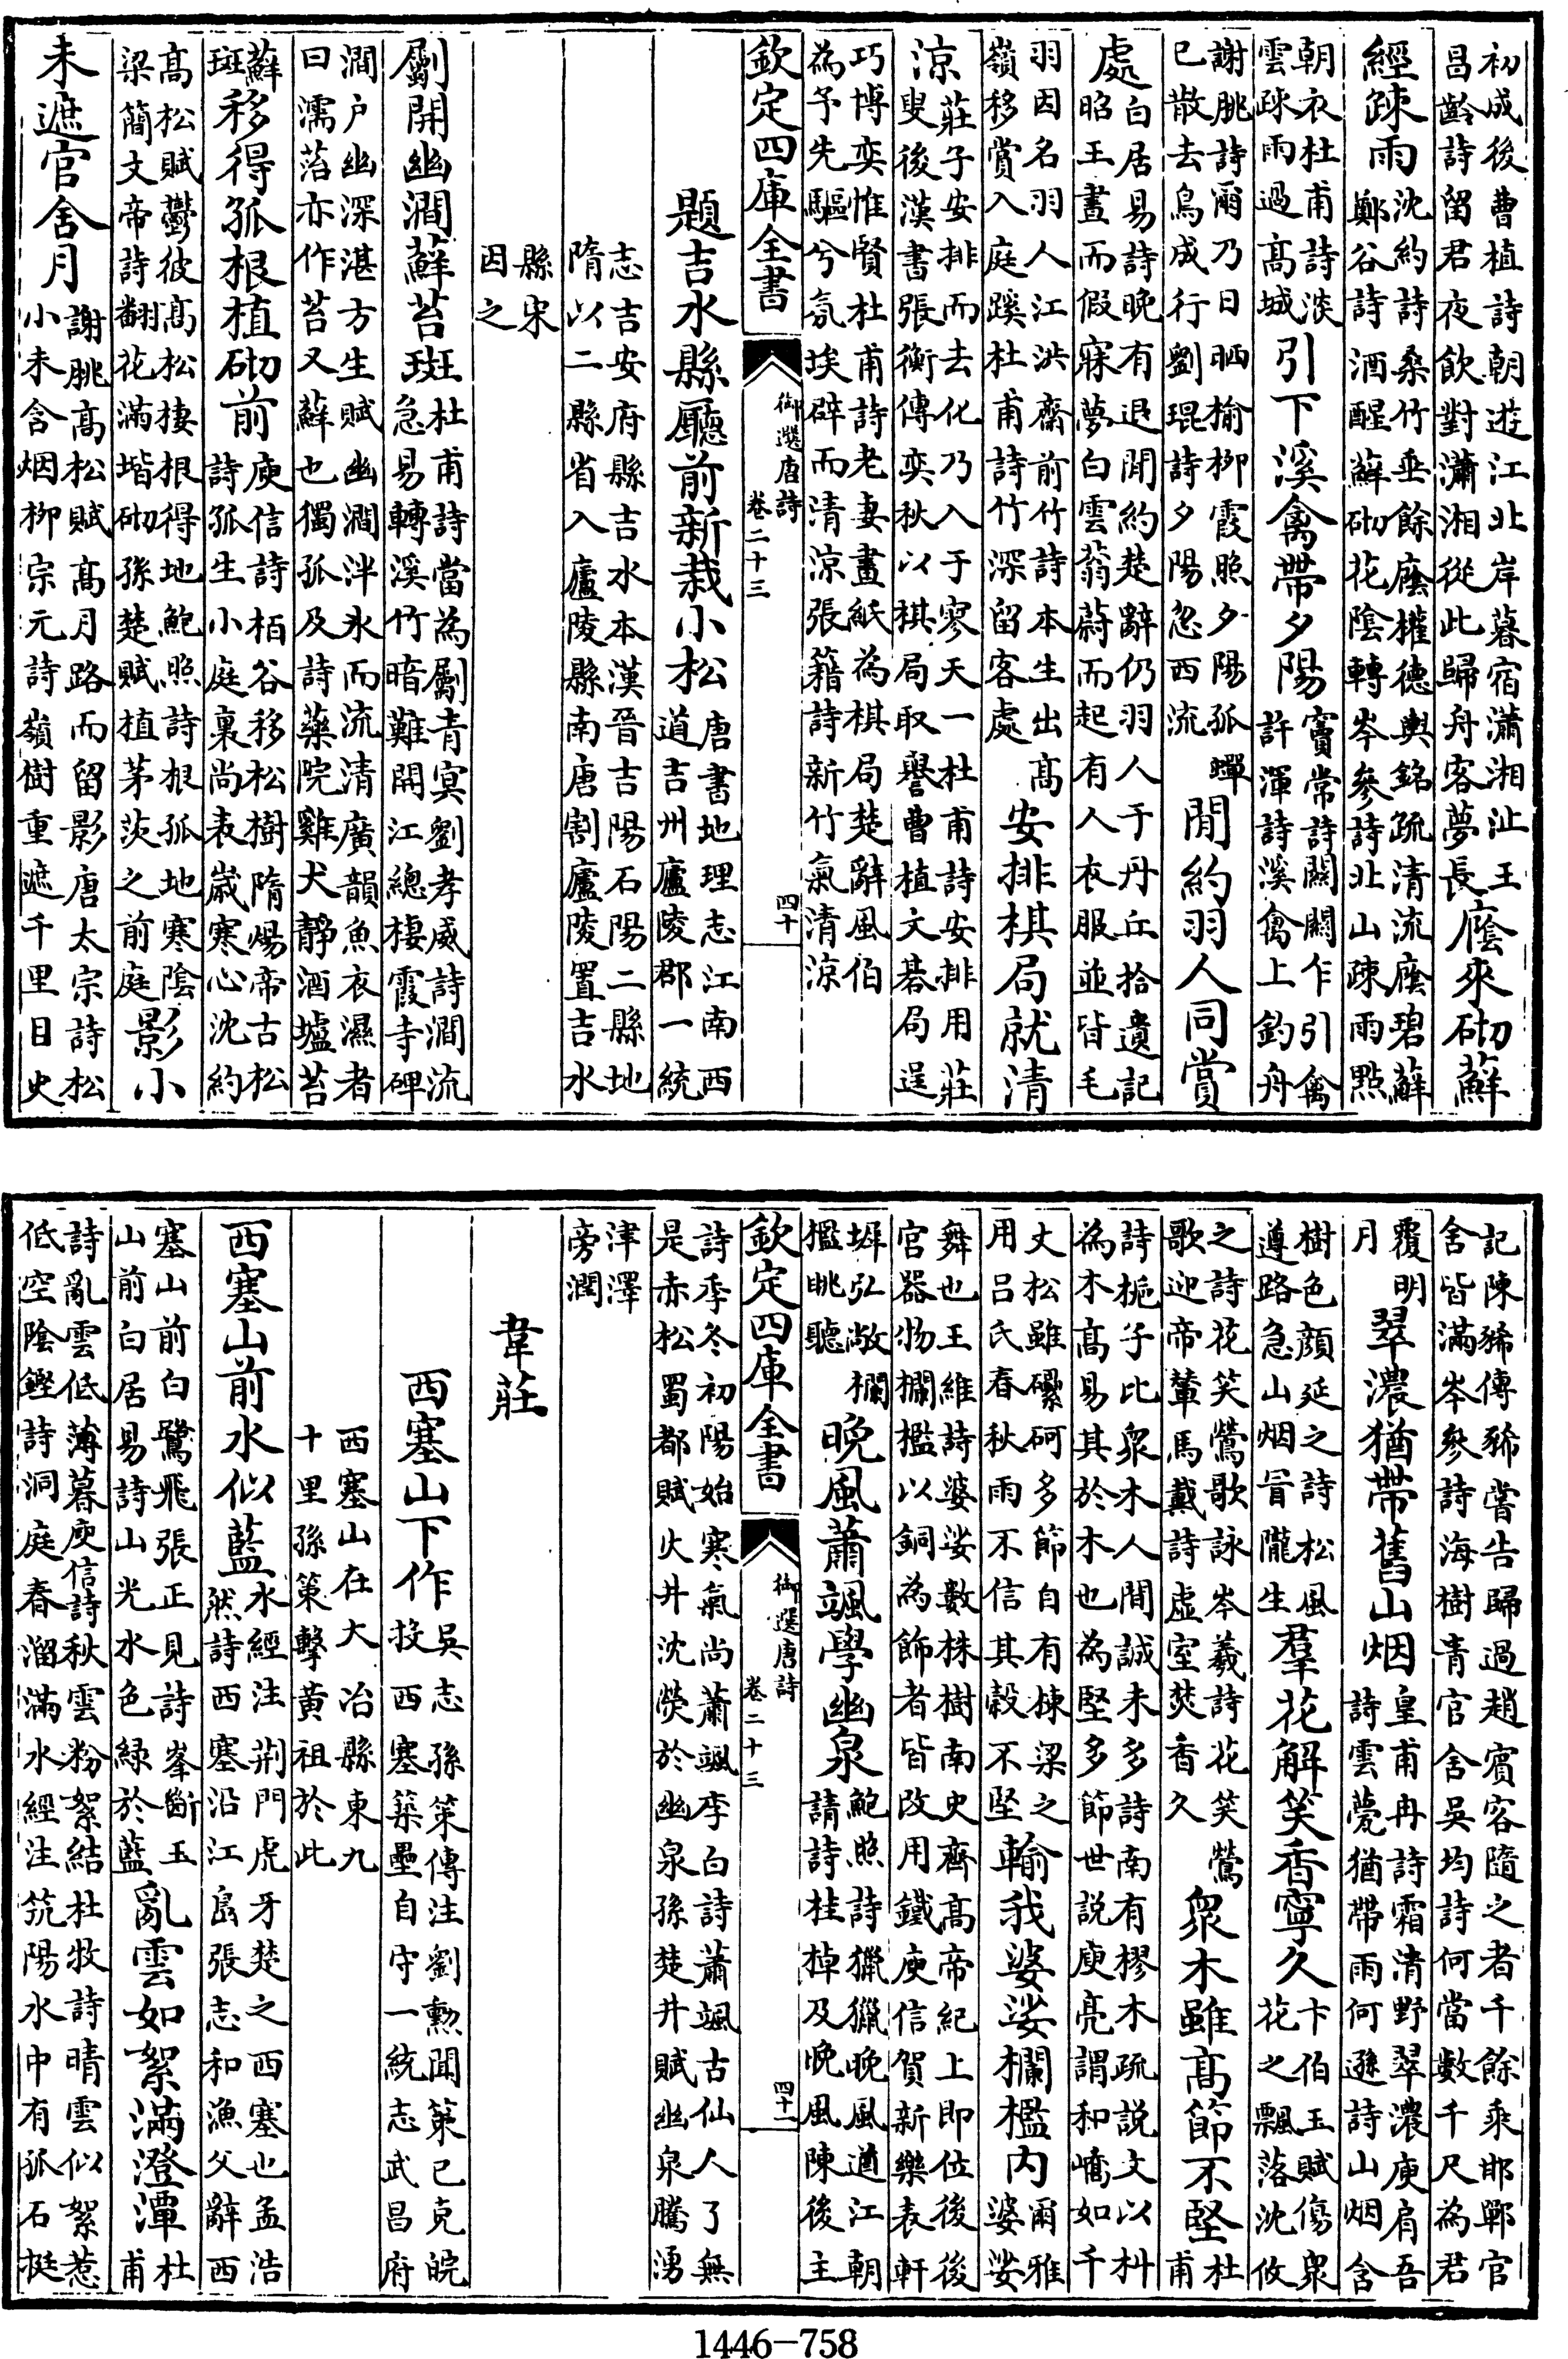 初成後曹植詩朝遊江北岸暮宿瀟湘沚王
昌齡詩留君夜飲對瀟湘從此歸舟客夢長廕來砌蘚
經疎雨沈約詩桑竹垂餘廕權德輿銘疏清流廕碧蘚
鄭谷詩酒醒蘚砌花陰轉岑參詩北山疎雨點
朝衣杜甫詩淡
雲疎雨過高城引下溪禽帶夕陽竇常詩闕闕乍引禽
許渾詩溪禽上釣舟
謝朓詩爾乃日晒榆柳霞照夕陽孤蟬
已散去鳥成行劉琨詩夕陽忽西流閒約羽人同賞
處白居易詩晚有退閒約楚辭仍羽人于丹丘拾遺記
昭王晝而假寐夢白雲蓊蔚而起有人衣服並皆毛
羽因名羽人江洪齋前竹詩本生出高
嶺移賞入庭蹊杜甫詩竹深留客處安排棋局就清
涼莊子安排而去化乃入于寥天一杜甫詩安排用莊
叟後漢書張衡傳奕秋以棋局取譽曹植文碁局逞
巧博奕惟賢杜甫詩老妻畫紙為棋局楚辭風伯
為予先驅兮氛埃辟而清涼張籍詩新竹氣清涼
欽定四庫全書
御選唐詩
卷二十三
四十
題吉水縣廳前新栽小松唐書地理志江南西
道吉州廬陵郡一統
志吉安府縣吉水本漢晉吉陽石陽二縣地
隋以二縣省入廬陵縣南唐割廬陵置吉水
縣宋
因之
劚開幽澗蘚苔斑杜甫詩當為劚青冥劉孝威詩澗流
急易轉溪竹暗難開江總棲霞寺碑
澗户幽深湛方生賦幽澗泮氷而流清廣韻魚衣濕者
曰濡菭亦作苔又蘚也獨孤及詩藥院雞犬靜酒壚苔
蘚
斑移得孤根植砌前庾信詩栢谷移松樹隋煬帝古松
詩孤生小庭裏尚表歲寒心沈約
高松賦鬱彼高松棲根得地鮑照詩根孤地寒陰
梁簡文帝詩翻花滿堦砌孫楚賦植茅茨之前庭影小
未遮官舍月謝朓高松賦髙月路而留影唐太宗詩松
小未含烟柳宗元詩嶺樹重遮千里目史
記陳豨傳豨嘗告歸過趙賓客隨之者千餘乘邯鄲官
舍皆滿岑參詩海樹青官舍吳均詩何當數千尺為君
覆明
月翠濃猶帶舊山烟皇甫冉詩霜清野翠濃庾肩吾
詩雲甍猶帶雨何遜詩山烟含
樹色顔延之詩松風
遵路急山烟冒隴生羣花解笑香寧久卞伯玉賦傷衆
花之飄落沈攸
之詩花笑鶯歌詠岑羲詩花笑鶯
歌迎帝輦馬戴詩虛室焚香久衆木雖高節不堅杜
甫
詩梔子比衆木人間誠未多詩南有樛木疏説文以朻
為木高易其於木也為堅多節世説庾亮謂和嶠如千
丈松雖磥砢多節自有棟梁之
用吕氏春秋雨不信其穀不堅輸我婆娑欄檻内爾雅
婆娑
舞也王維詩婆娑數株樹南史齊高帝紀上即位後後
宮器物欄檻以銅為飾者皆改用鐵庾信賀新樂表軒
墀弘敞欄
檻眺聽晚風蕭颯學幽泉鮑照詩獵獵晚風遒江朝
請詩桂棹及晚風陳後主
欽定四庫全書
御選唐詩
卷二十三
四十一
詩季冬初陽始寒氣尚蕭颯李白詩蕭颯古仙人了無
是赤松蜀都賦火井沈熒於幽泉孫楚井賦幽泉騰湧
津澤
旁潤
韋莊
西塞山下作吳志孫策傳注劉勲聞策已克皖
投西塞築壘自守一統志武昌府
西塞山在大冶縣東九
十里孫策擊黃祖於此
西塞山前水似藍水經注荆門虎牙楚之西塞也孟浩
然詩西塞沿江島張志和漁父辭西
塞山前白鷺飛張正見詩峯斷玉
山前白居易詩山光水色緑於藍亂雲如絮滿澄潭杜
甫
詩亂雲低薄暮庾信詩秋雲粉絮結杜牧詩晴雲似絮惹
低空陰鏗詩洞庭春溜滿水經注筑陽水中有孤石挺
1446-758